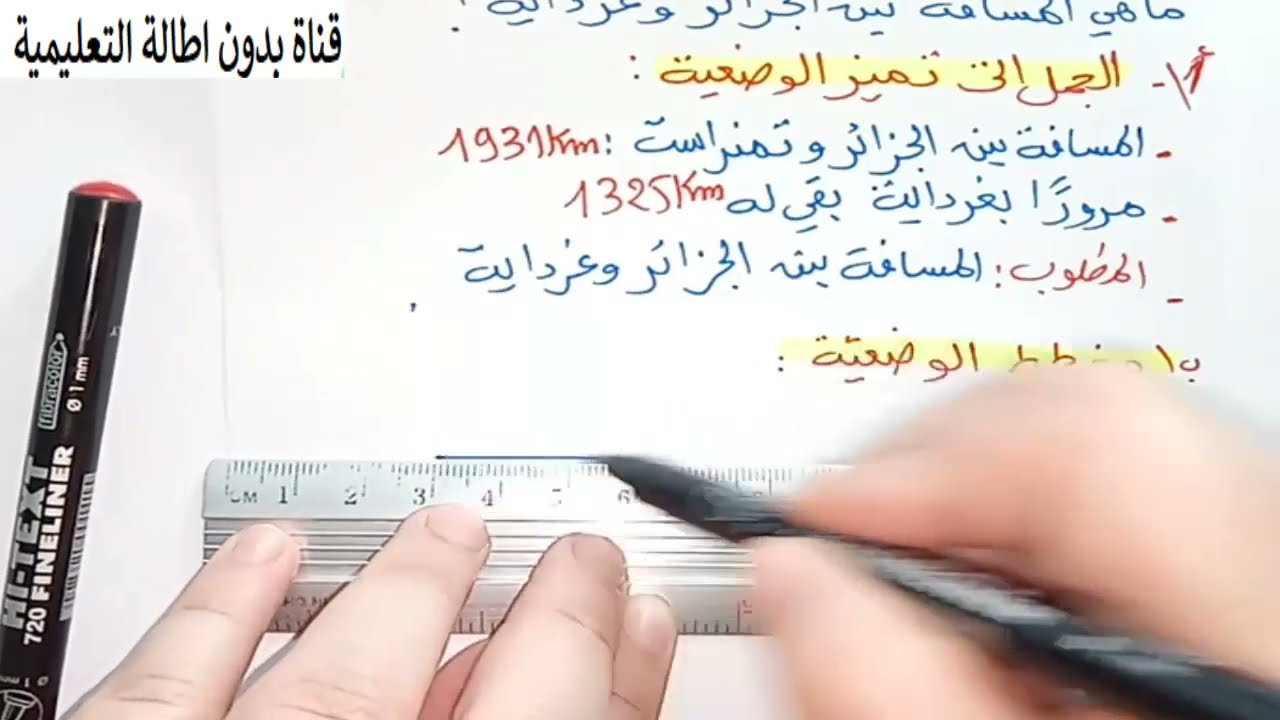 قناة بدون اطالة التعليمية
ما هي المسافة بين الجزائر وغرداية ؟
أ\- الجمل التي تميز الوضعية :
- المسافة بين الجزائر و تمنراست : 1931Km
- مرورًا بغرداية بقي له 1325Km
- المطلوب : المسافة بين الجزائر وغرداية .
ب\ مخطط الوضعيّة :
CM 1 2 3 4 5 6
HI-TEXT
720 FINELINER
fibracolor
Ø 1 mm
Ø 1 m